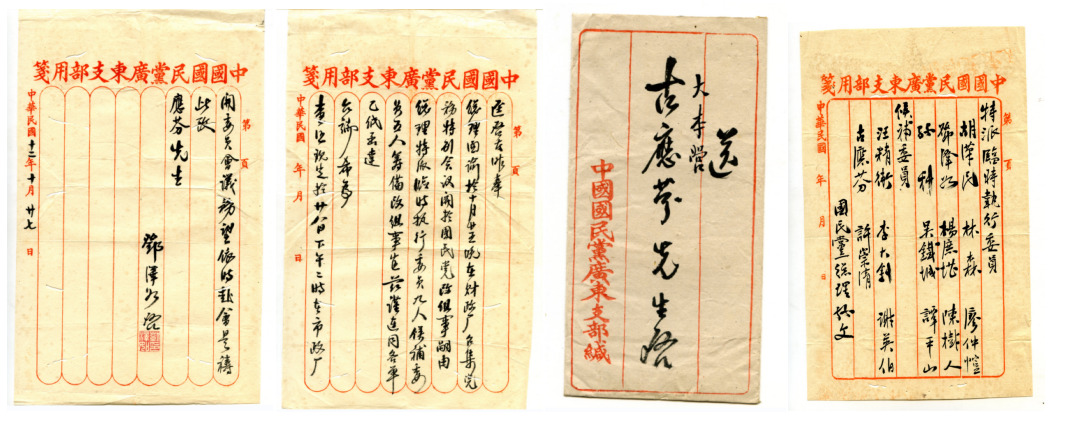 中國國民黨廣東支部用箋
第 頁
特派臨時執行委員
胡漢民 林森 廖仲愷
鄧澤如 楊庶堪 陳樹人
孫科 吳鐵城 譚平山
候補委員
汪精衛 李大釗 謝英伯
古應芬 許崇清
國民黨總理孫文
中華民國 年 月 日
送
大本營
古應芬先生啓
中國國民黨廣東支部緘
中國國民黨廣東支部用箋
第 頁
逕啓者昨奉
總理面諭於十月廿五晚在財政厂召集党
務特別會议關於國民党改組事嗣由
總理特派臨時執行委員九人候補委
員五人籌備改組事宜茲謹連同名單
乙紙函達
台端希為
查照現定於廿八日下午二時在市政厂
中華民國 年 月 日
中國國民黨廣東支部用箋
第 頁
開委員會議務望依時蒞會是禱
此致
應芬先生
鄧澤如啓
中華民國十二年十月廿七日